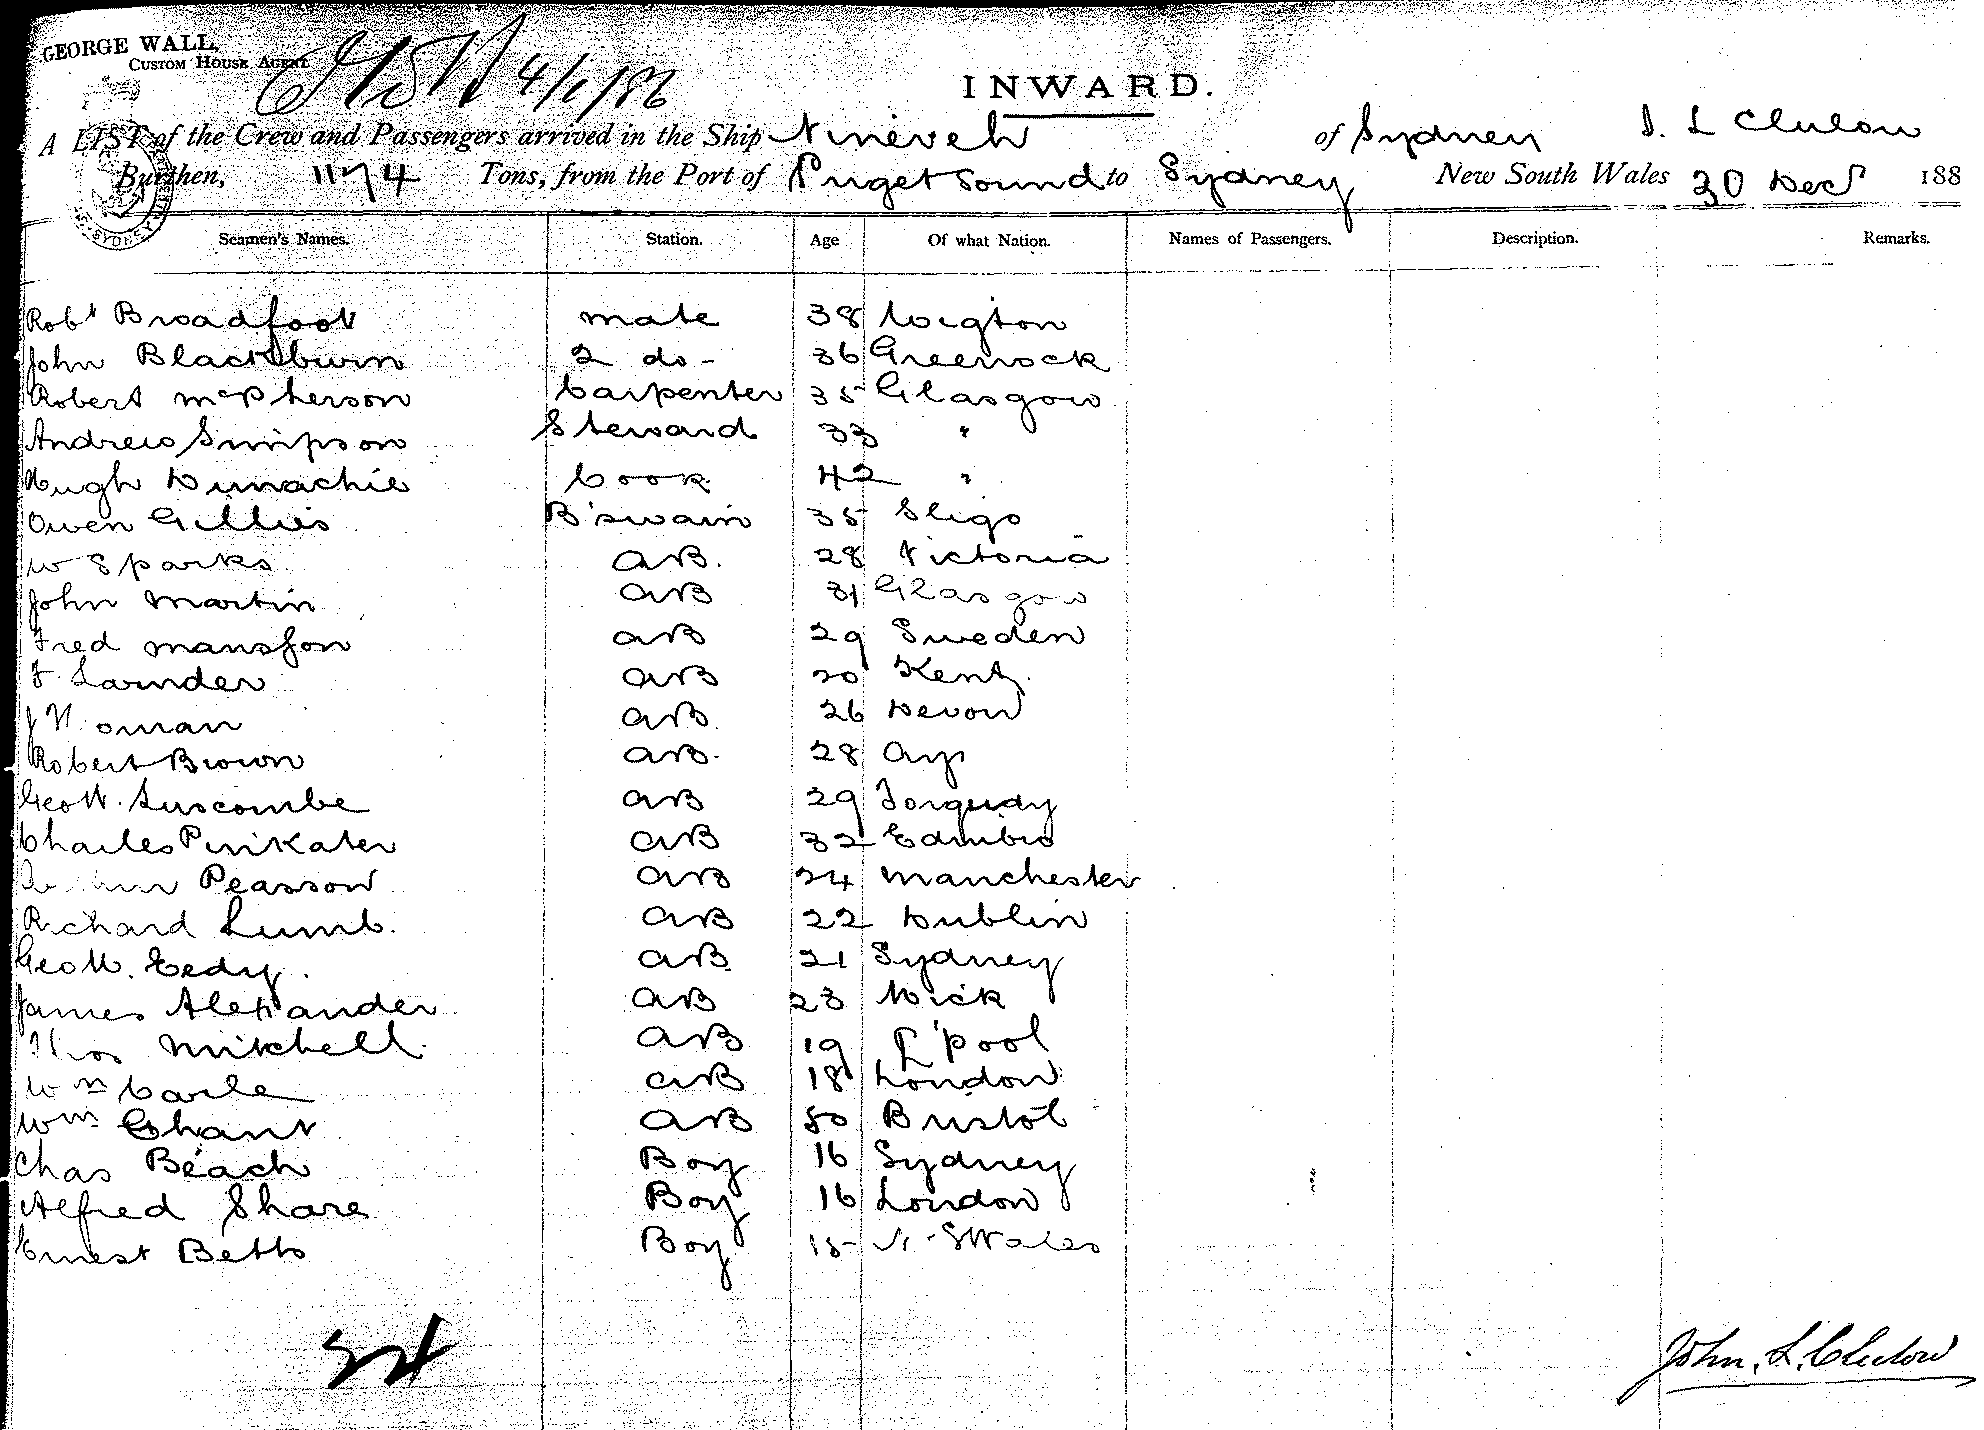 GEORGE WALL,
CUSTOM HOUSE AGENT
4/1/86
INWARD.
A LIST of the Crew and Passengers arrived in the Ship Nineveh of Sydney J. L Clulow
Burthen, 1174 Tons, from the Port of Puget Sound to Sydney New South Wales 30 Decr 188
Seamen's Names. Station. Age Of what Nation. Names of Passengers. Description. Remarks.
Robt Broadfoot mate 38 Wigton
John Blackburn 2 do - 36 Greenock
Robert McPherson Carpenter 35 Glasgow
Andrew Simpson Steward 33 "
Hugh Dunachie Cook 42 "
Owen Gillies B'swain 35 Sligo
W Sparks AB. 28 Victoria
John Martin AB 31 Glasgow
Fred Mansfon AB 29 Sweden
F. Larnder AB 20 Kent
J Noman AB 26 Devon
Robert Brown AB. 28 Ayr
Geo W. Luscombe AB 29 Torquay
Charles Pinkater AB 32 Edinbro
Pearson AB 24 Manchester
Richard Lumb. AB 22 Dublin
Geo W. Eedy. AB 21 Sydney
James Alexander AB 23 Wick
Thos Mitchell. AB 19 L'pool
Wm Carle AB 18 London
Wm Chant AB 50 Bristol
Chas Beach Boy 16 Sydney
Alfred Share Boy 16 London
Ernest Betts Boy 15 N. S Wales
24
John. L. Clulow